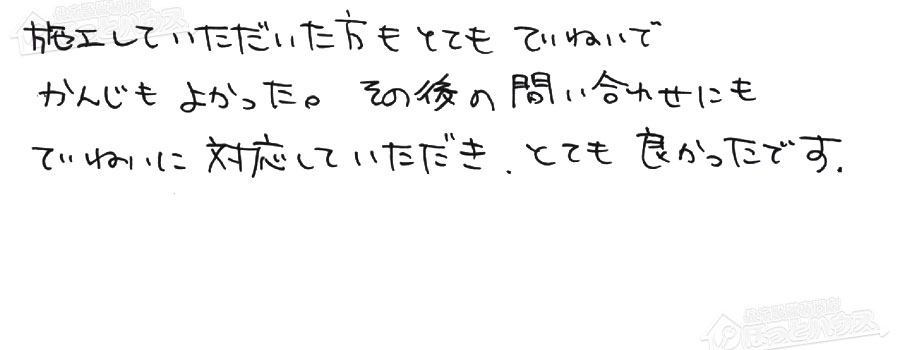 施工していただいた方もとてもていねいで
かんじもよかった。その後の問い合わせにも
ていねいに対応していただき、とても良かったです.
ほっとハウス